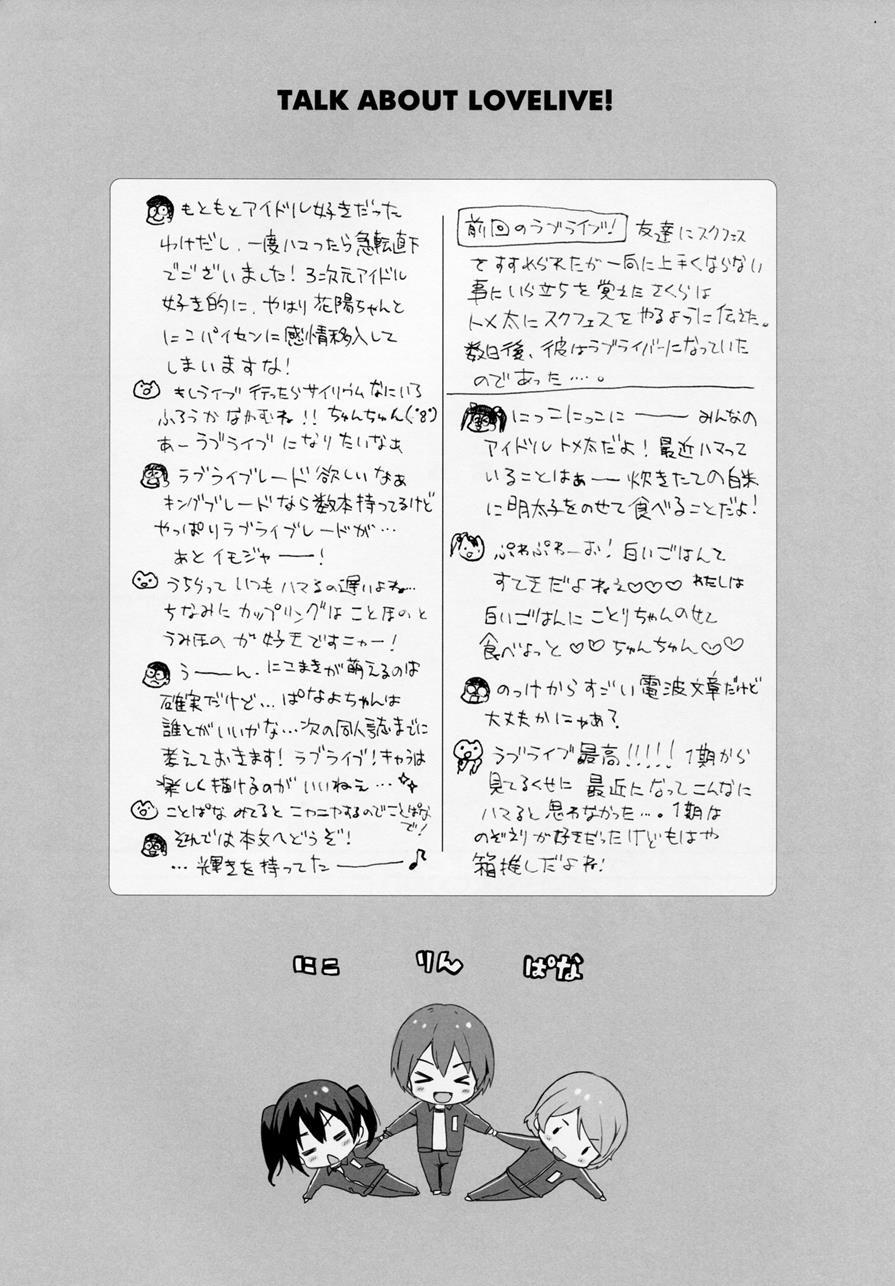 TALK ABOUT LOVELIVE!
前回のラブライブ! 友達にスクフェス
をすすめられたが一向に上手くならない
事にいら立ちを覚えたさくらは
トメ太にスクフェスをやるように伝えた。
数日後、彼はラブライバーになっていた
のであった…。
にっこにっこに―― みんなの
アイドルトメ太だよ!最近ハマって
いることはぁー炊きたての白米
に明太子をのせて食べることだよ!
ぷわぷわーお!白いごはんて
すてきだよねぇ♡♡♡わたしは
白いごはんにことりちゃんのせて
食べよっと♡♡ちゅんちゅん♡♡
のっけからすごい電波文章だけど
大丈夫かにゃあ?
ラブライブ最高!!!!!1期から
見てるくせに最近になってこんなに
ハマると思わなかった…。1期は
のぞえりが好きだったけどもはや
箱推しだよね!
もともとアイドル好きだった
わけだし、一度ハマったら急転直下
でございました!3次元アイドル
好き的に、やはり花陽ちゃんと
にこパイセンに感情移入して
しまいますな!
もしライブ行ったらサイリウムなにいろ
ふろうかなかむね!!ちゅんちゅん(・8・)
あーラブライブになりたいなぁ
ラブライブレード欲しいなぁ
キングブレードなら数本持ってるけど
やっぱりラブライブレードが…
あとイモジャ――!
うちらっていつもハマるの遅いよね…
ちなみにカップリングはことほのと
うみほのが好きですニャー!
う――ん、にこまきが萌えるのは
確実だけど…ぱなよちゃんは
誰とがいいかな…次の同人誌までに
考えておきます!ラブライブ!キャラは
楽しく描けるのがいいねぇ…
ことぱなみてるとニヤニヤするのでことぱなで!
そんでは本文へどうぞ!
…輝きを持ってた――♪
にこ りん ぱな